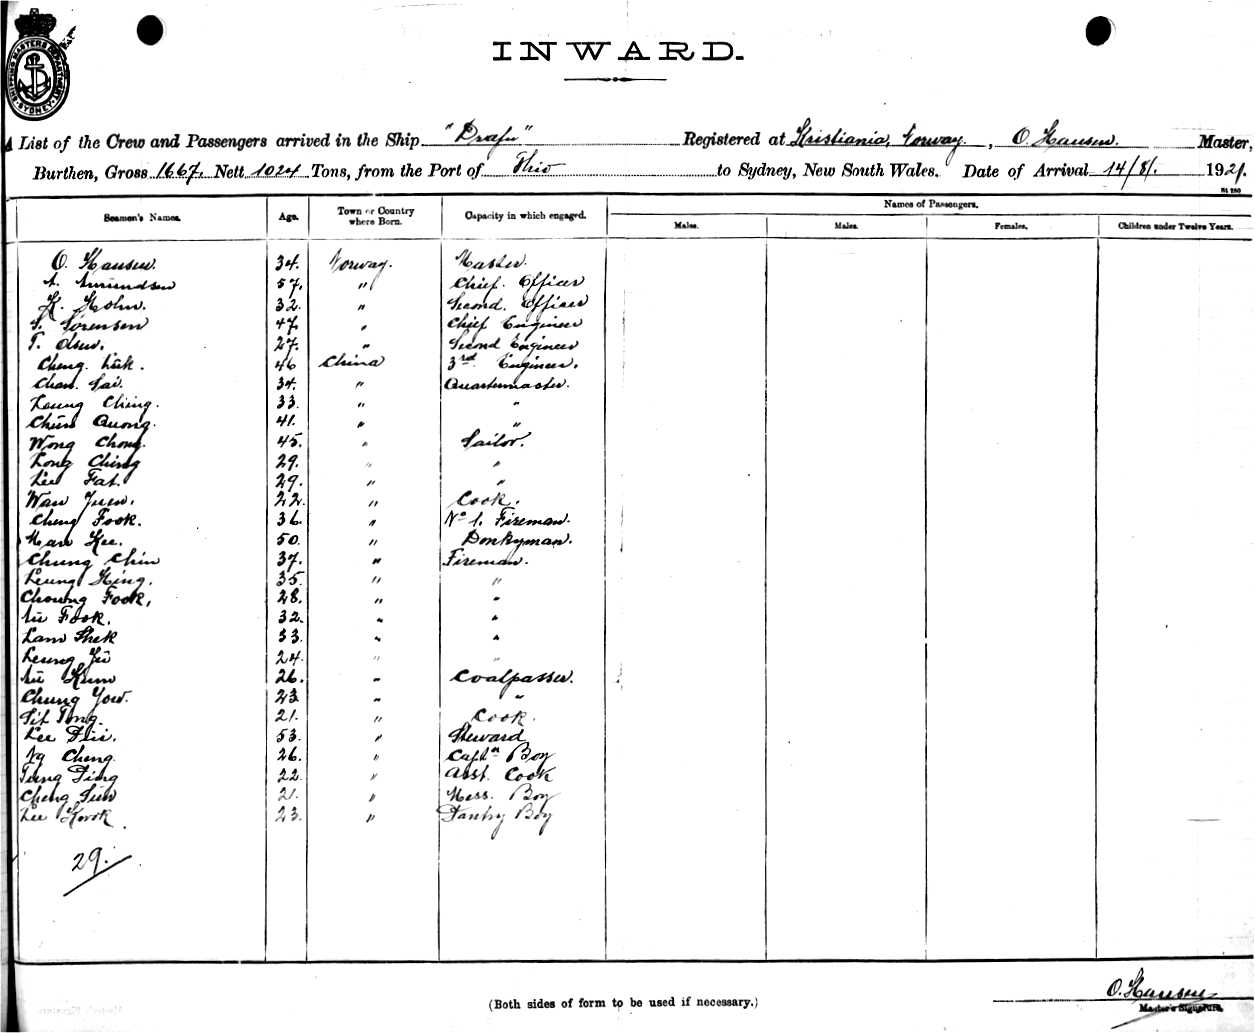 SHIPPING MASTERS DEPARTMENT SYDNEY
INWARD.
A List of the Crew and Passengers arrived in the Ship "Drafn" Registered at Kristiania, Norway, O. Hansen. Master,
Burthen, Gross 1667. Nett 1024 Tons, from the Port of Thio to Sydney, New South Wales. Date of Arrival 14/8/. 1921.
Seamen's Names. Age. Town or Country where Born. Capacity in which engaged. Names of Passengers.
Males. Males. Females. Children under Twelve Years.
O. Hansen. 34. Norway. Master.
A. Amundsen 57. " Chief. Officer
K. Holm. 32. " Second. Officer
S. Sorensen 47. " Chief Engineer
T. Olsen. 27. " Second Engineer
Cheng. 46 China 3rd Engineer.
Chan. Sai. 34. " Quartermaster.
Leung Ching. 33. " "
Chun Quong. 41. " "
Wong Chong. 45. " Sailor.
Long Ching 29. " "
Lee Fat. 29. " "
Wan Yuen. 22. " Cook.
Cheng Fook. 36. " No 1. Fireman.
Man Kee. 50. " Donkyman.
Chung Chin 37. " Fireman.
Leung Hing. 35. " "
Choung Fook, 28. " "
Au Fook. 32. " "
Lam Shek 33. " "
Leung Yu 24. " "
Au Kum 26. " Coalpasser.
Chung Yow. 23 " "
Sit Tong. 21. " Cook.
Lee 53. " Steward
Ng Cheng. 26. " Captn Boy
Tung Ping 22. " Asst. Cook
Cheng Sun 21. " Mess. Boy
Lee Kwok 23. " Pantry Boy
29.
O. Hansen
(Both sides of form to be used if necessary.) Master's Signature.